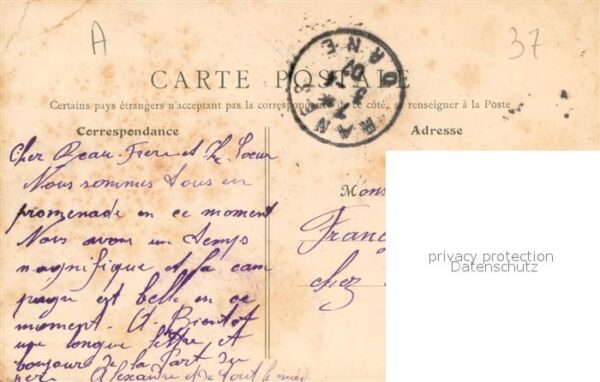 A
37
CARTE POSTALE
Certains pays étrangers n'acceptant pas la correspondance de ce côté, se renseigner à la Poste
Correspondance
Adresse
RANES
ORNE
Cher Beau-Frere et Ch Soeur
Nous sommes tous en
promenade en ce moment
Nous avons un temps
magnifique et la cam
pagne est belle en ce
moment. A Bientôt
une longue lettre et
bonjours de la Part du
pere Alexandre et de tout le monde
Mons
Franç
chez
privacy protection
Datenschutz